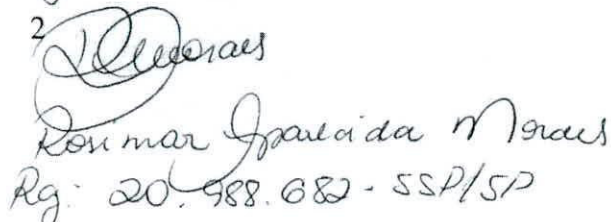 2
Rosimar Aparecida Moraes
Rg: 20.988.682 - SSP/SP